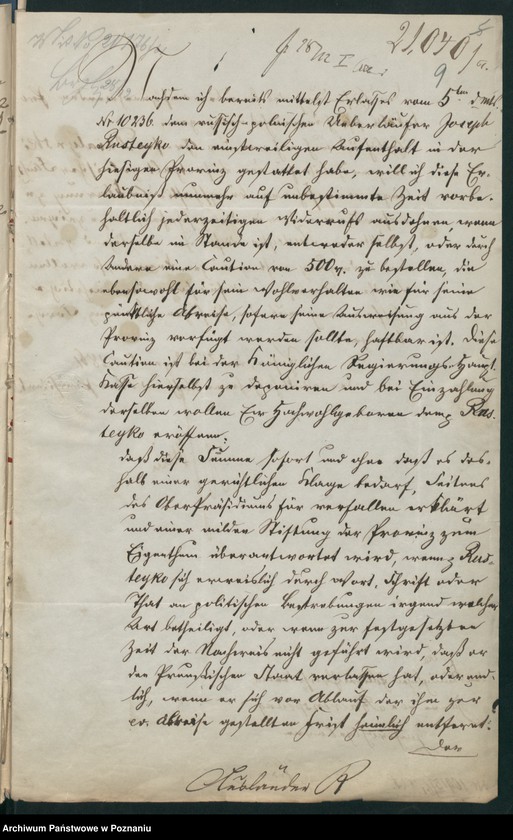 21040/a.
9
Nachdem ich bereits mittelst Erlasses vom 5ten d. Mts.
№ 10236. dem russisch-polnischen Ueberläufer Joseph
Rusteyko den einstweiligen Aufenthalt in der
hiesigen Provinz gestattet habe, will ich diese Er-
laubniß nunmehr auf unbestimmte Zeit vorbe-
haltlich jederzeitigen Widerrufs ausdehnen, wenn
derselbe im Stande ist, entweder selbst, oder durch
Andere eine Caution von 500 zu bestellen, die
ebensowohl für sein Wohlverhalten wie für seine
pünktliche Abreise, sofern seine Ausweisung aus der
Provinz verfügt werden sollte, haftbar ist. Diese
Caution ist bei der Königlichen Regierungs-Haupt-
Kasse hierselbst zu deponiren und bei Einzahlung
derselben wollen Ew Hochwohlgeboren dem p Rus-
teyko eröffnen:
daß diese Summe sofort und ohne daß es des-
halb einer gerichtlichen Klage bedarf, Seitens
des OberPräsidiums für verfallen erklärt
und einer milden Stiftung der Provinz zum
Eigenthum überantwortet wird, wenn p Rus-
teyko sich erweislich durch Wort, Schrift oder
That an politischen Bestrebungen irgend welcher
Art betheiligt, oder wenn zur festgesetzten
Zeit der Nachweis nicht geführt wird, daß er
den Preußischen Staat verlassen hat, oder end-
lich, wenn er sich vor Ablauf der ihm zur
ev. Abreise gestellten Frist heimlich entfernt.
Der
Ausländer R
Archiwum Państwowe w Poznaniu